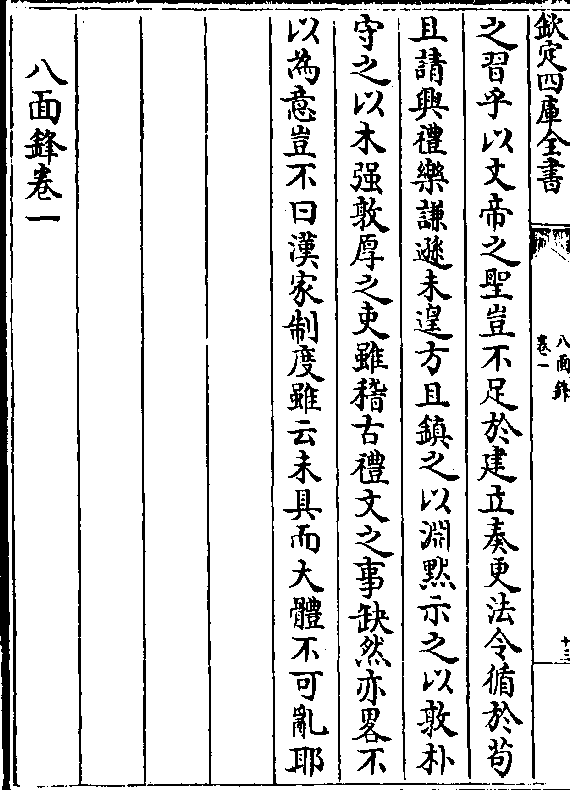 欽定四庫全書
八面鋒
卷一
十三
之習乎以文帝之聖豈不足於建立奏更法令循於苟
且請興禮樂謙遜未遑方且鎮之以淵黙示之以敦朴
守之以木强敦厚之吏雖稽古禮文之事缺然亦畧不
以為意豈不曰漢家制度雖云未具而大體不可亂耶
八面鋒卷一